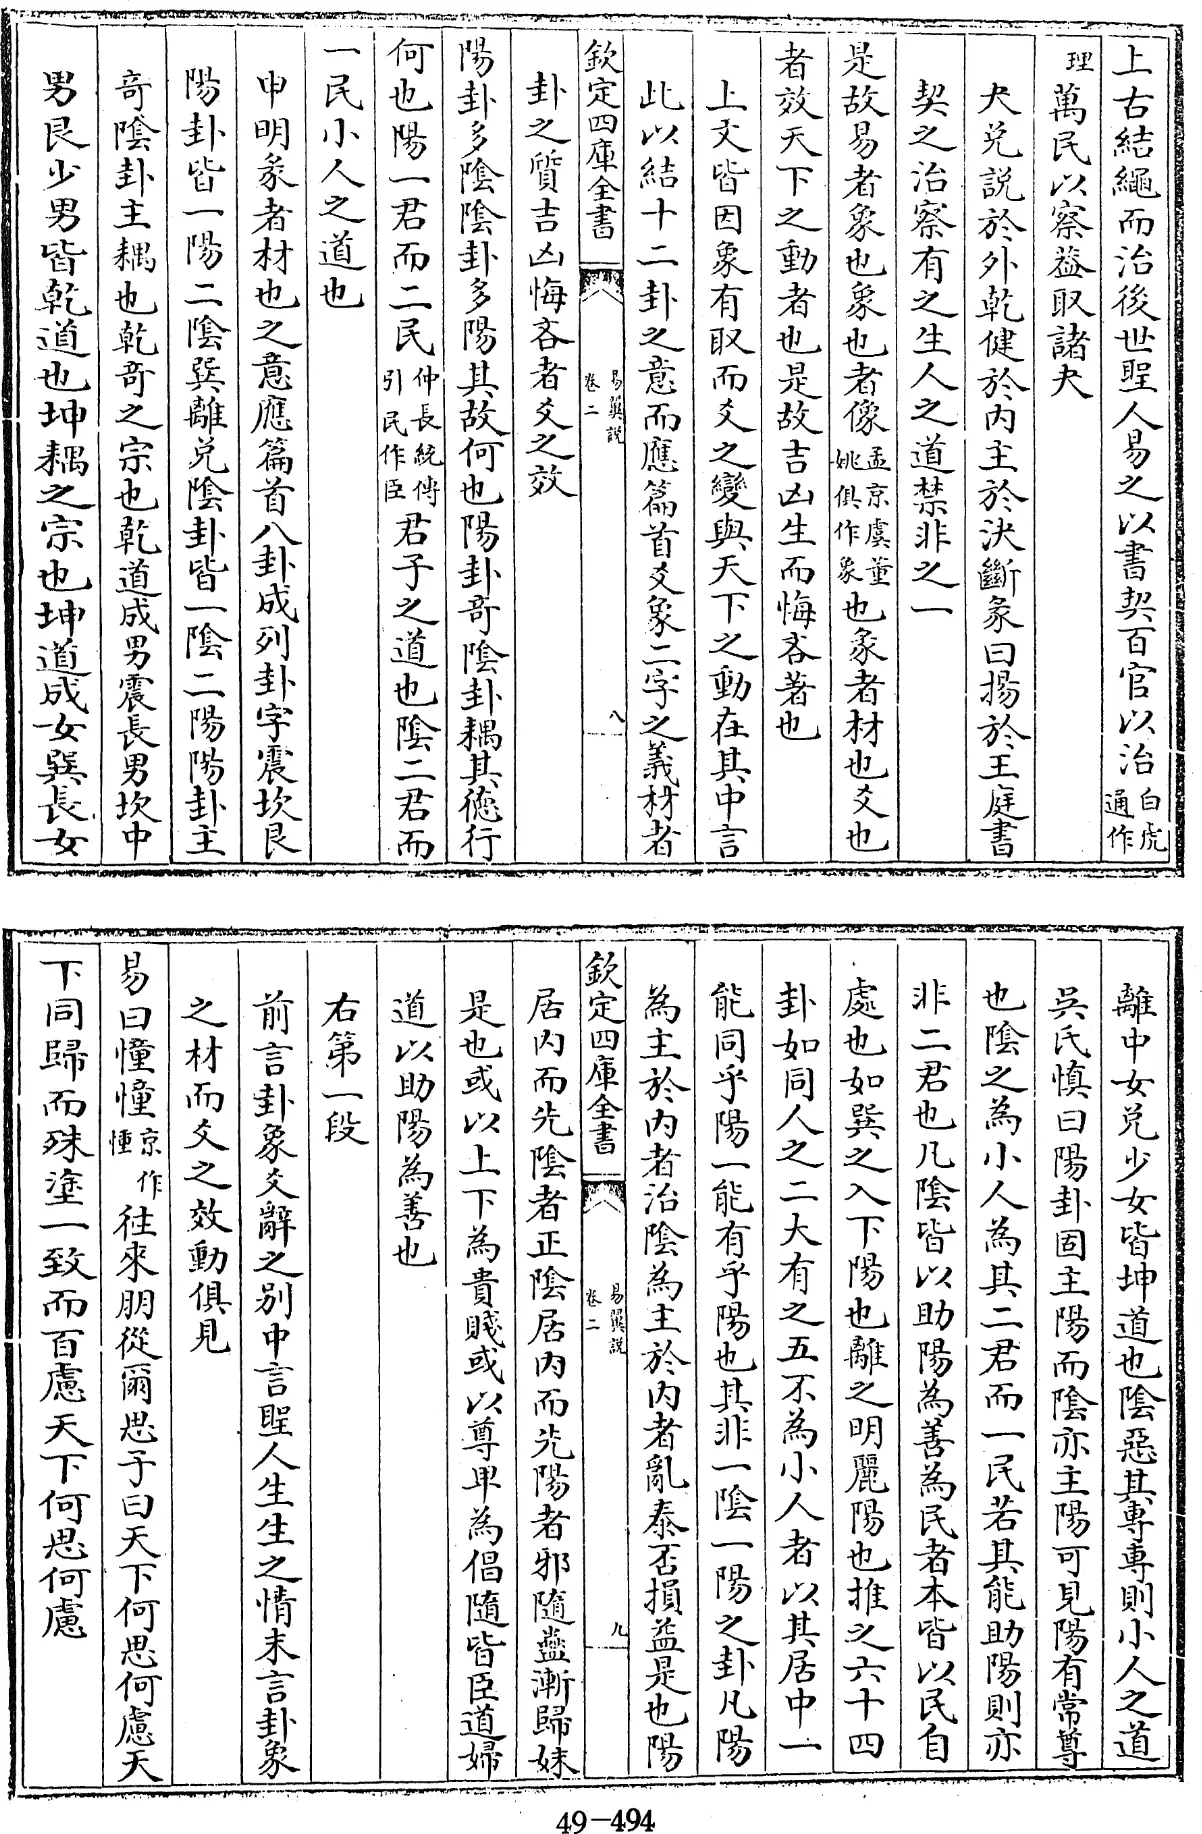 上古結繩而治後世聖人易之以書契百官以治白虎通作
理萬民以察葢取諸夬
夬兌說於外乾健於内主於決斷彖曰揚於王庭書
契之治察有之生人之道禁非之一
是故易者象也象也者像孟京虞董姚俱作象也彖者材也爻也
者效天下之動者也是故吉凶生而悔吝著也
上文皆因象有取而爻之變與天下之動在其中言
此以結十二卦之意而應篇首爻象二字之義材者
欽定四庫全書 易翼說 卷二 八
卦之質吉凶悔吝者爻之效
陽卦多陰陰卦多陽其故何也陽卦竒陰卦耦其德行
何也陽一君而二民仲長統傳引民作臣君子之道也陰二君而
一民小人之道也
申明彖者材也之意應篇首八卦成列卦字震坎艮
陽卦皆一陽二陰巽離兌陰卦皆一陰二陽陽卦主
竒陰卦主耦也乾竒之宗也乾道成男震長男坎中
男艮少男皆乾道也坤耦之宗也坤道成女巽長女
離中女兌少女皆坤道也陰惡其專專則小人之道
吳氏慎曰陽卦固主陽而陰亦主陽可見陽有常尊
也陰之為小人為其二君而一民若其能助陽則亦
非二君也凡陰皆以助陽為善為民者本皆以民自
處也如巽之入下陽也離之明麗陽也推之六十四
卦如同人之二大有之五不為小人者以其居中一
能同乎陽一能有乎陽也其非一陰一陽之卦凡陽
為主於内者治陰為主於内者亂泰否損益是也陽
欽定四庫全書 易翼說 卷二 九
居内而先陰者正陰居内而先陽者邪隨蠱漸歸妹
是也或以上下為貴賤或以尊卑為倡隨皆臣道婦
道以助陽為善也
右第一段
前言卦象爻辭之别中言聖人生生之情末言卦象
之材而爻之效動俱見
易曰憧憧京作㣫往來朋從爾思子曰天下何思何慮天
下同歸而殊塗一致而百慮天下何思何慮
49-494